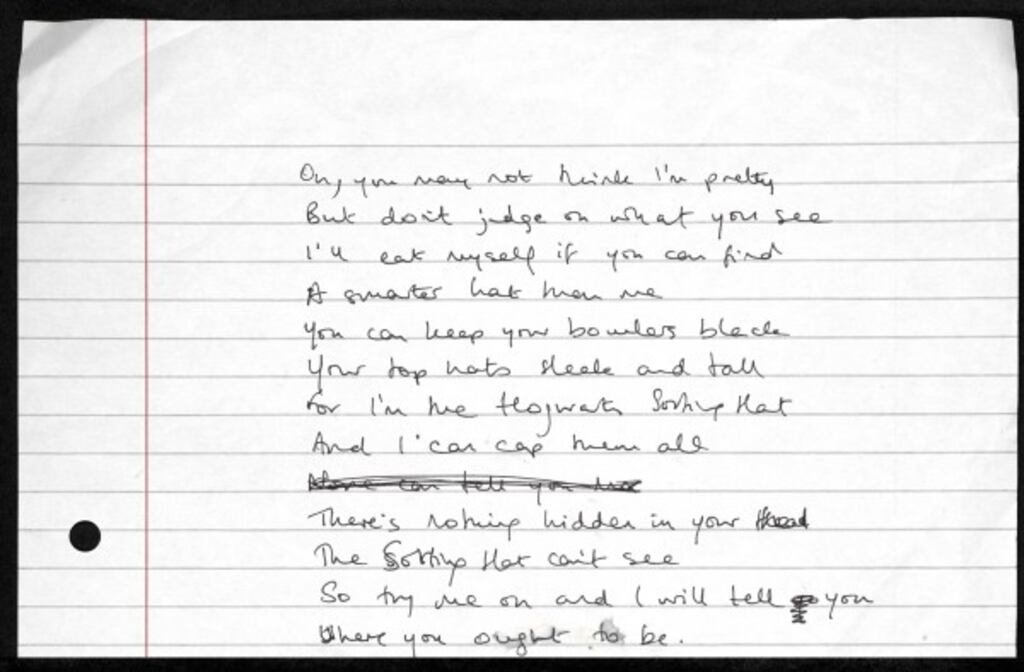 Oh, you may not think I'm pretty
But don't judge on what you see
I'll eat myself if you can find
A smarter hat than me
You can keep your bowlers black
Your top hats sleek and tall
For I'm the Hogwarts Sorting Hat
And I can cap them all
can tell you
There's nothing hidden in your head
The Sorting Hat can't see
So try me on and I will tell you
Where you ought to be.